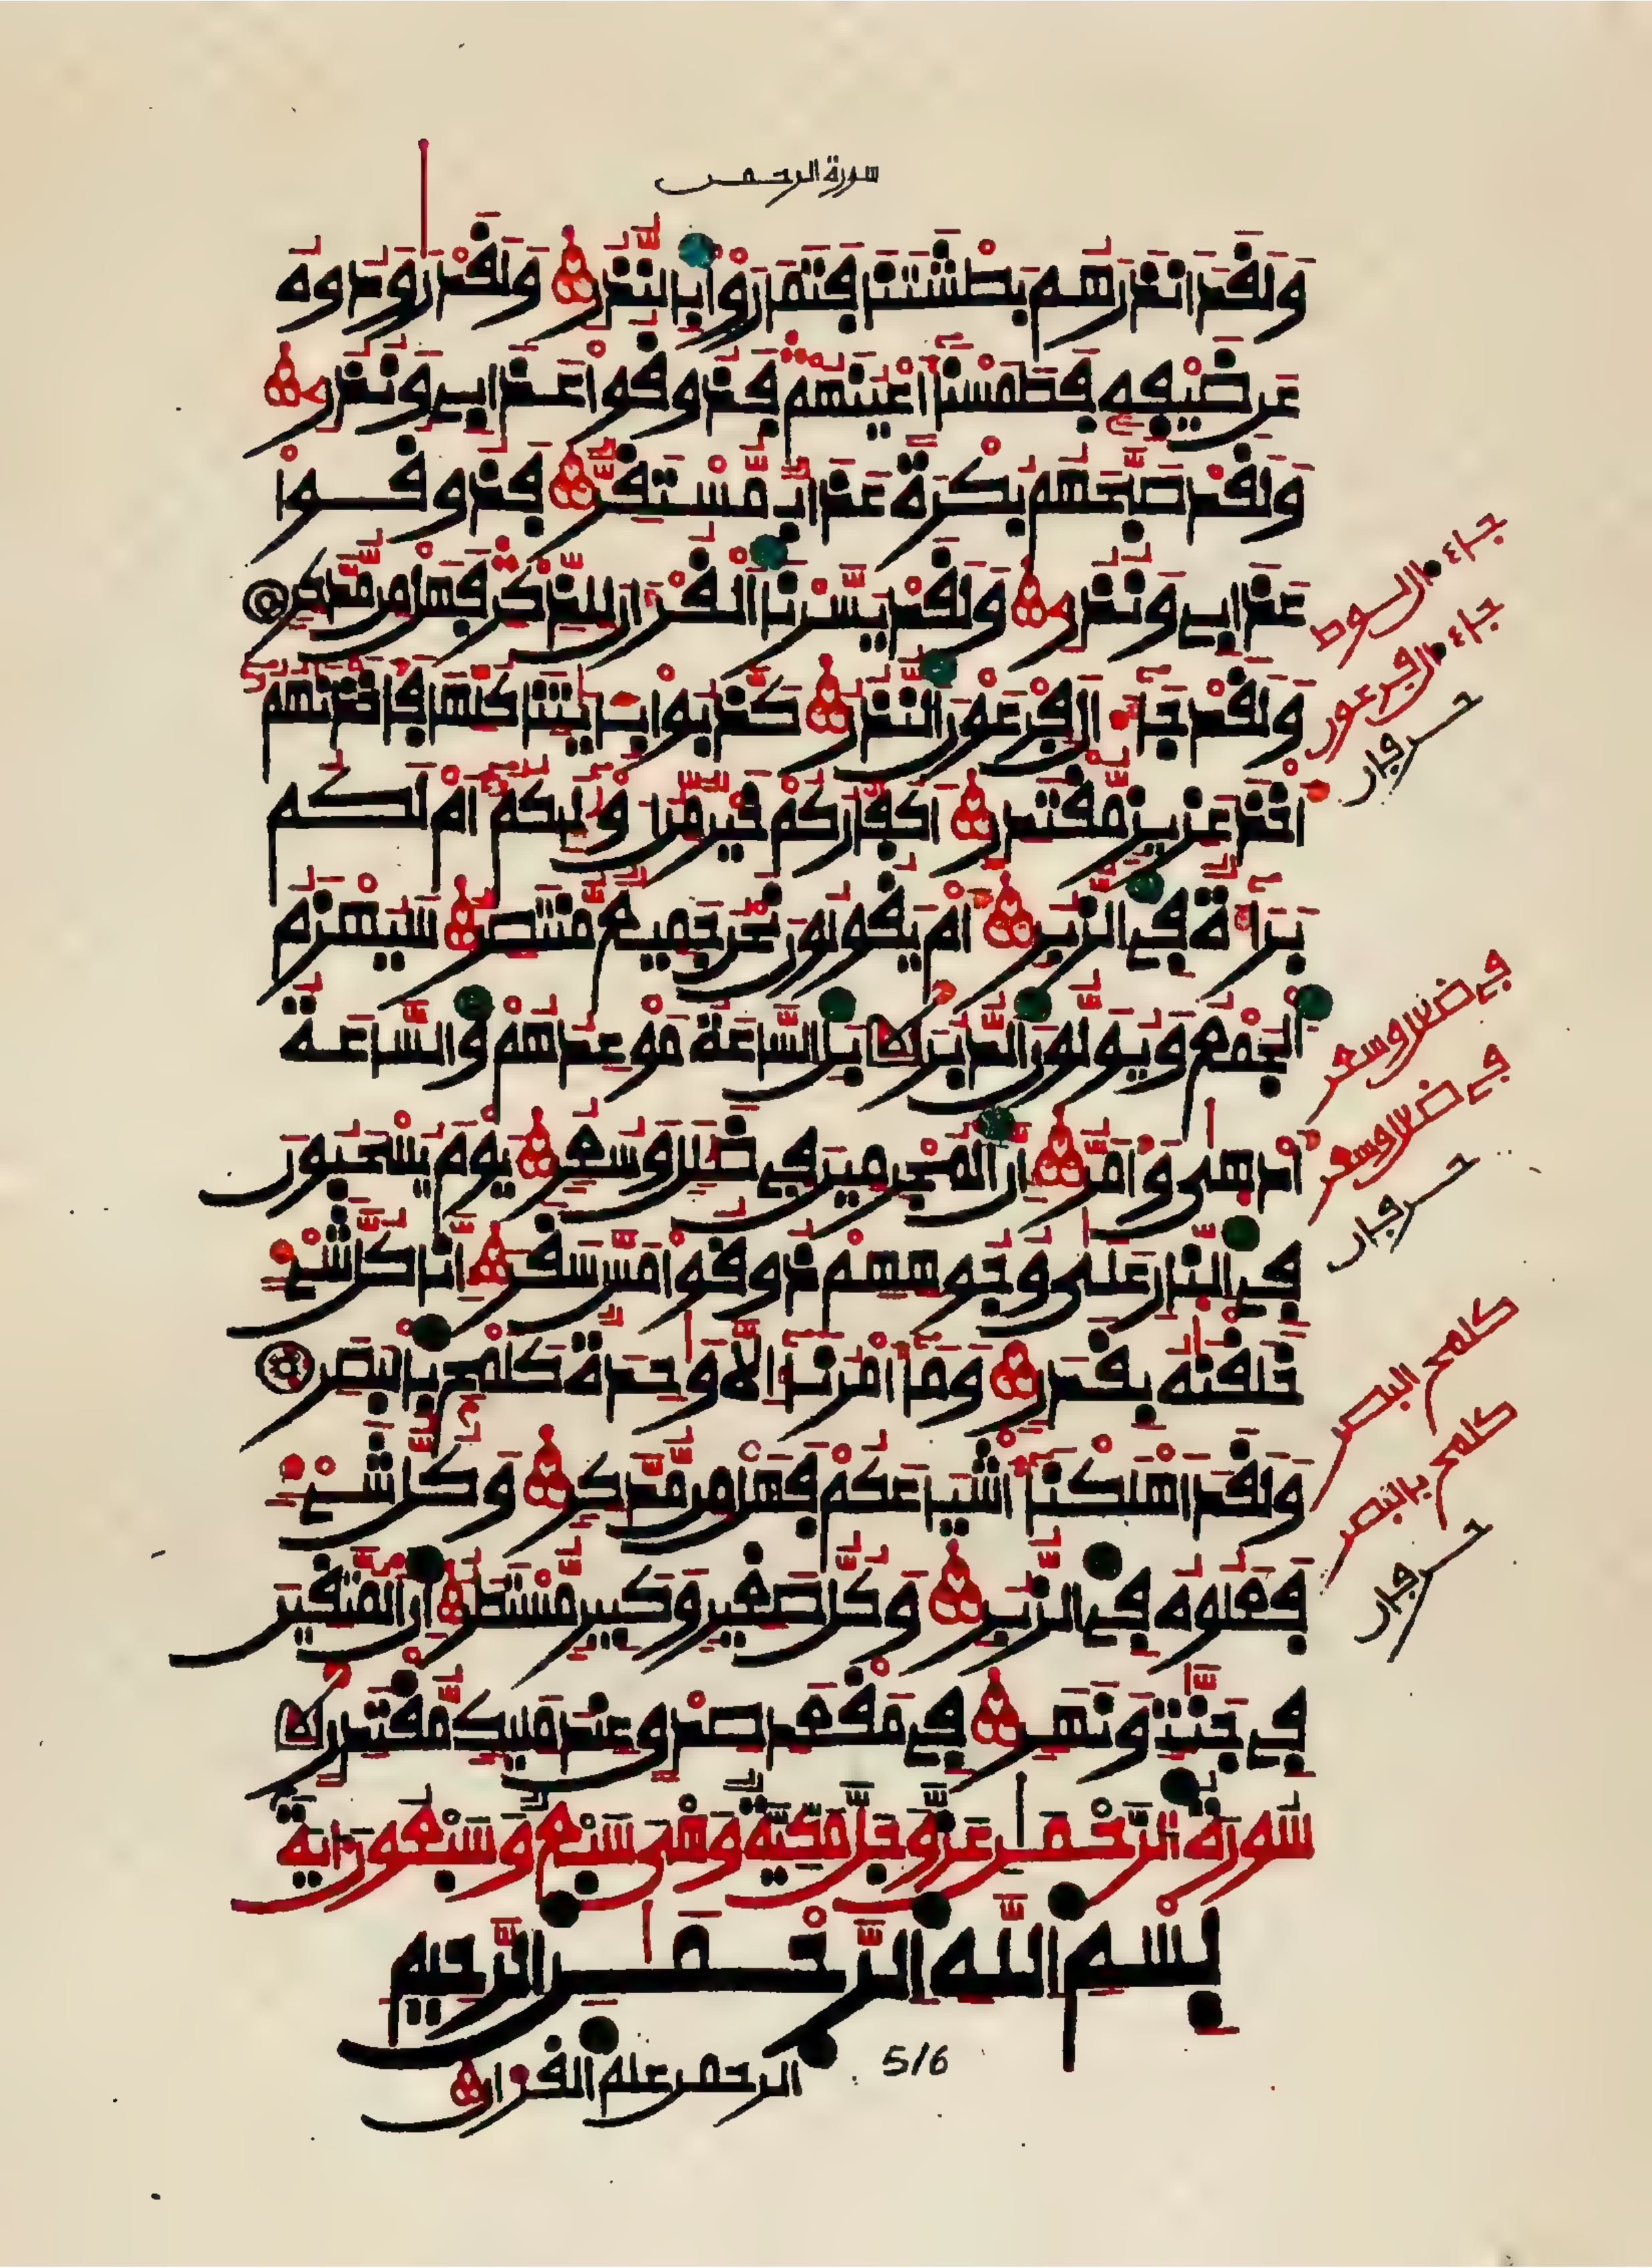 سورة الرحمن
وَلَقَدَ اَنذَرَهُم بَطْشَتَنَا فَتَمَارَوْاْ بِالنُّذُرِ وَلَقَدْ رَٰوَدُوهُ
عَن ضَيْفِهِ فَطَمَسْنَا أَعْيُنَهُمْ فَذُوقُواْ عَذَابِي وَنُذُرِ
وَلَقَدْ صَبَّحَهُم بُكْرَةً عَذَابٌ مُّسْتَقِرٌّ فَذُوقُواْ
عَذَابِي وَنُذُرِ وَلَقَدْ يَسَّرْنَا اَلْقُرْءَانَ لِلذِّكْرِ فَهَلْ مِن مُّدَّكِرٍ
وَلَقَدْ جَاءَ الَ فِرْعَوْنَ النُّذُرُ كَذَّبُواْ بِـَٔايَٰتِنَا كُلِّهَا فَأَخَذْنَٰهُمُ
أَخْذَ عَزِيزٍ مُّقْتَدِرٍ أَكُفَّارُكُمْ خَيْرٌ مِّنُ ا۟وْلَٰئِكُمُ أَمْ لَكُم
بَرَاءَةٌ فِي الزُّبُرِ أَمْ يَقُولُونَ نَحْنُ جَمِيعٌ مُّنتَصِرٌ سَيُهْزَمُ
اُلْجَمْعُ وَيُوَلُّونَ الدُّبُرَ بَلِ السَّاعَةُ مَوْعِدُهُمْ وَالسَّاعَةُ
أَدْهَىٰ وَأَمَرُّ إِنَّ الْمُجْرِمِينَ فِي ضَلَٰلٍ وَسُعُرٍ يَوْمَ يُسْحَبُونَ
فِي النَّارِ عَلَىٰ وُجُوهِهِمْ ذُوقُواْ مَسَّ سَقَرَ إِنَّا كُلَّ شَيْءٍ
خَلَقْنَٰهُ بِقَدَرٍ وَمَا أَمْرُنَا إِلَّا وَٰحِدَةٌ كَلَمْحٍ بِالْبَصَرِ
وَلَقَدَ اَهْلَكْنَا أَشْيَاعَكُمْ فَهَلْ مِن مُّدَّكِرٍ وَكُلُّ شَيْءٍ
فَعَلُوهُ فِي الزُّبُرِ وَكُلُّ صَغِيرٍ وَكَبِيرٍ مُّسْتَطَرٌ إِنَّ الْمُتَّقِينَ
فِي جَنَّٰتٍ وَنَهَرٍ فِي مَقْعَدِ صِدْقٍ عِندَ مَلِيكٍ مُّقْتَدِرٍ
سُورَةُ الرَّحْمَٰنِ عَزَّ وَجَلَّ مَكِّيَّةٌ وَهْيَ سَبْعٌ وَسَبْعُونَ ءَايَةً
بِسْمِ اِللَّهِ اِلرَّحْمَٰنِ اِلرَّحِيمِ
الرحمن علم القران
5/6
جاء ال لوط
جاء ال فرعون
حرفان
في ضلل وسعر
في ضلل وسعر
حرفان
كلمح البصر
كلمح بالبصر
حرفان